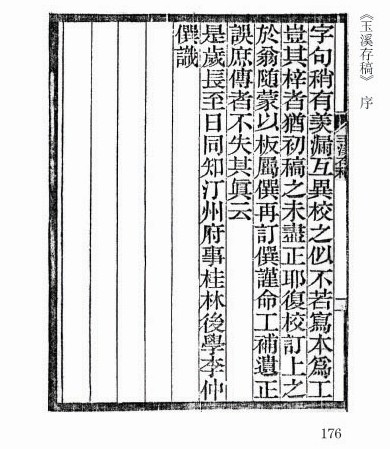 《玉溪存稿》 序
字句稍有羨漏互異校之似不若寫本爲工
豈其梓者猶初稿之未盡正耶復校訂上之
於翁隨蒙以板屬僎再訂僎謹命工補遺正
誤庶傳者不失其眞云
是歲長至日同知汀州府事桂林後學李仲
僎識
176